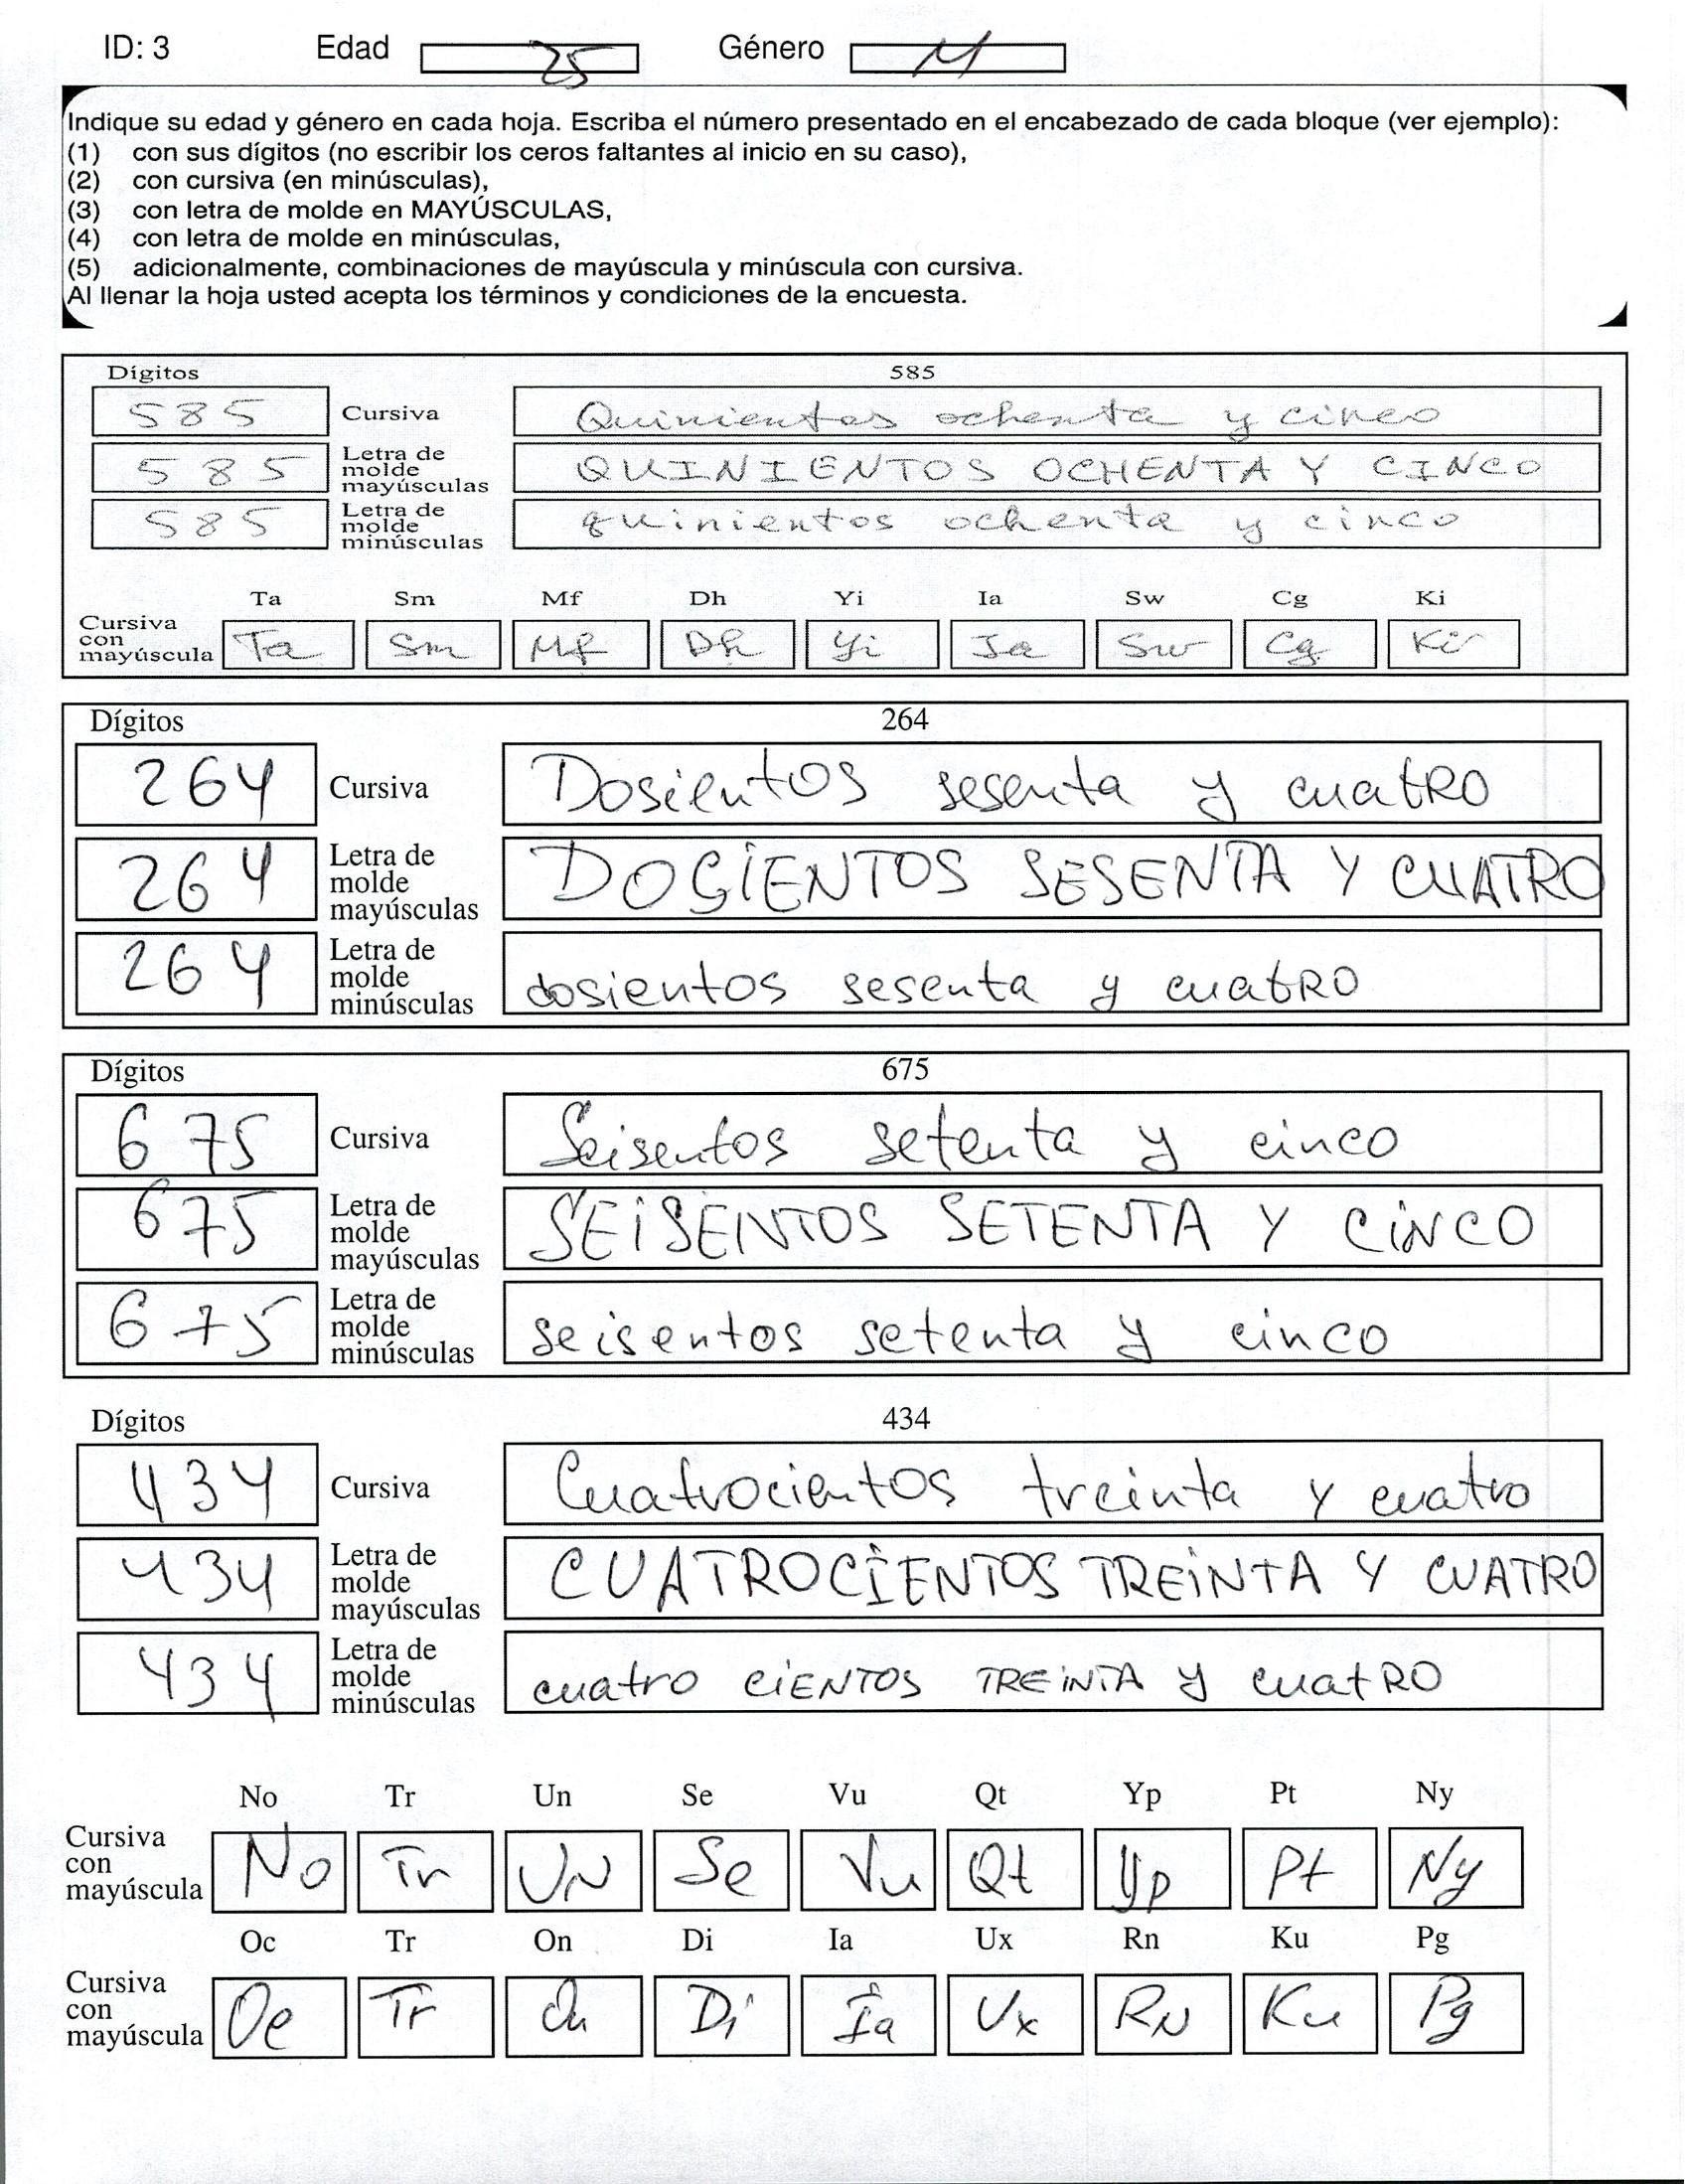 ID: 3 Edad 25 Género M
Indique su edad y género en cada hoja. Escriba el número presentado en el encabezado de cada bloque (ver ejemplo):
(1) con sus dígitos (no escribir los ceros faltantes al inicio en su caso),
(2) con cursiva (en minúsculas),
(3) con letra de molde en MAYÚSCULAS,
(4) con letra de molde en minúsculas,
(5) adicionalmente, combinaciones de mayúscula y minúscula con cursiva.
Al llenar la hoja usted acepta los términos y condiciones de la encuesta.
Dígitos 585
585 Cursiva Quinientos ochenta y cinco
585 Letra de molde mayúsculas QUINIENTOS OCHENTA Y CINCO
585 Letra de molde minúsculas quinientos ochenta y cinco
Ta Sm Mf Dh Yi Ia Sw Cg Ki
Cursiva con mayúscula Ta Sm Mf Dh Yi Ia Sw Cg Ki
Dígitos 264
264 Cursiva Dosientos sesenta y cuatRO
264 Letra de molde mayúsculas DOSiENTOS SESENTA Y CUATRO
264 Letra de molde minúsculas dosientos sesenta y cuatRO
Dígitos 675
675 Cursiva Seisentos setenta y cinco
675 Letra de molde mayúsculas SEiSENTOS SETENTA Y CiNCO
675 Letra de molde minúsculas seisentos setenta y cinco
Dígitos 434
434 Cursiva Cuatrocientos treinta y cuatro
434 Letra de molde mayúsculas CUATROCiENTOS TREiNTA Y CUATRO
434 Letra de molde minúsculas cuatro ciENTOS TREiNTA y cuatRO
No Tr Un Se Vu Qt Yp Pt Ny
Cursiva con mayúscula No Tr UN Se Vu Qt Yp Pt Ny
Oc Tr On Di Ia Ux Rn Ku Pg
Cursiva con mayúscula Oc Tr On Di Ia Ux RN Ku Pg